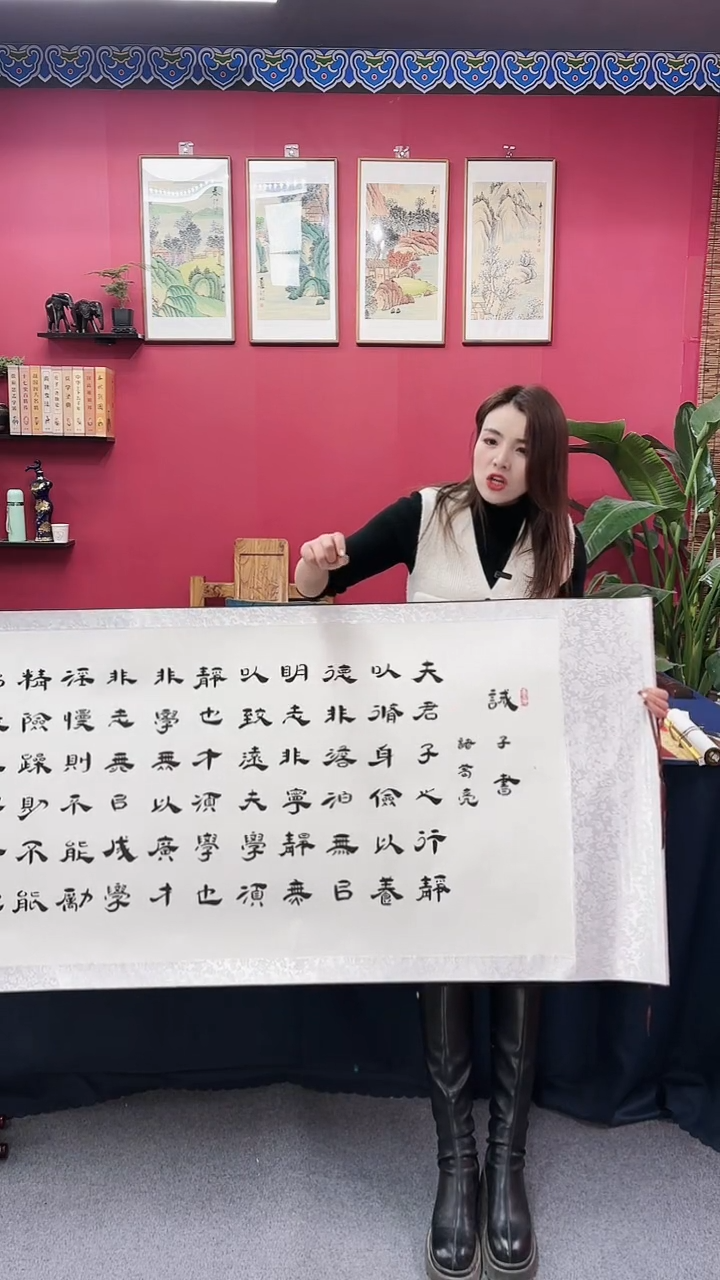 誡子書
諸葛亮
夫君子之行靜
以脩身儉以養
德非澹泊無㠯
明志非寧靜無
以致遠夫學須
靜也才須學也
非學無以廣才
非志無㠯成學
淫慢則不能勵
精險躁則不能